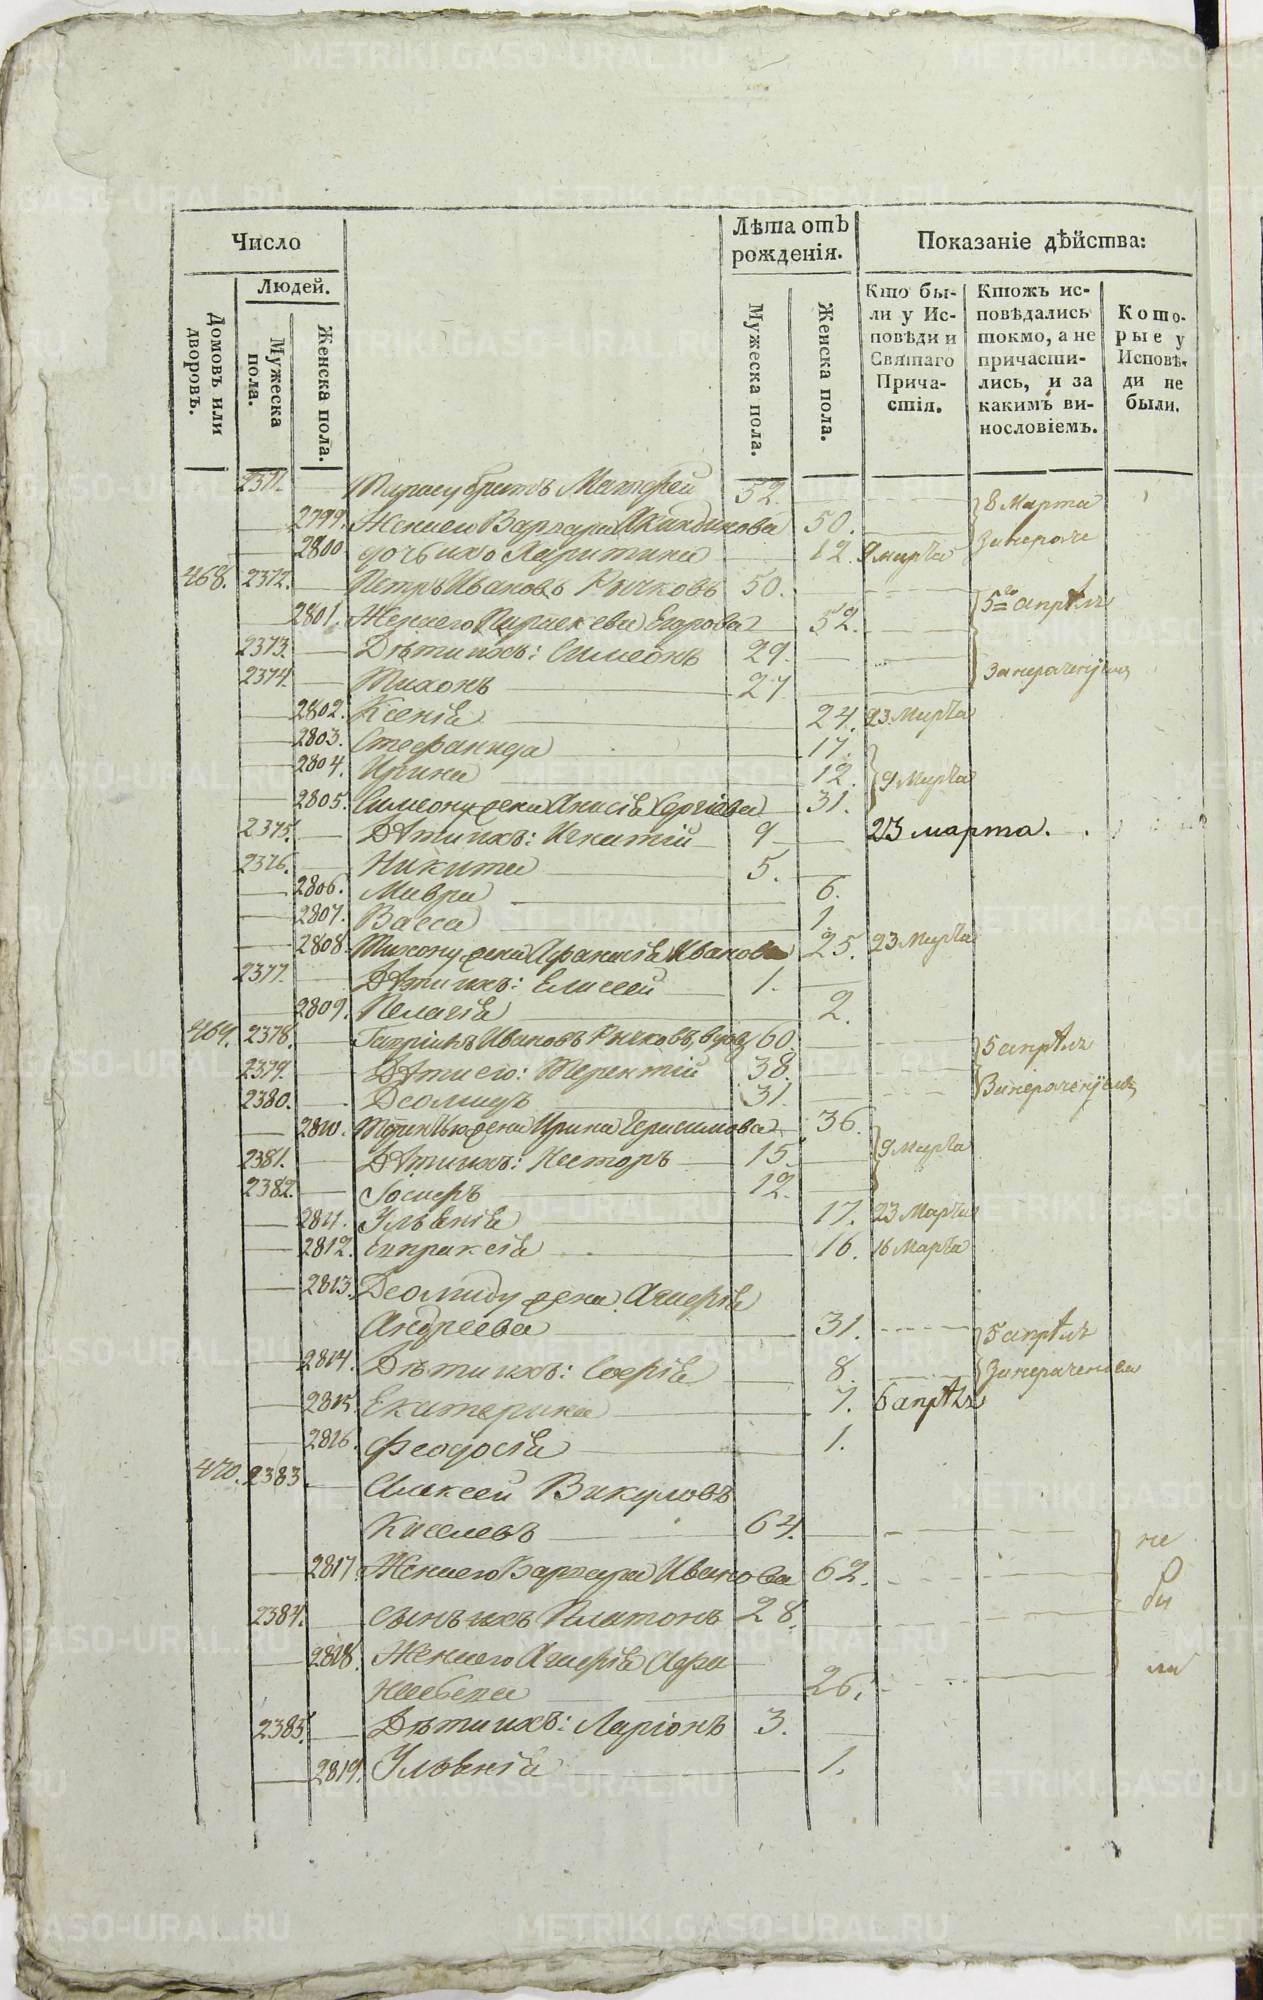 Число
Лѣта отъ рожденія.
Показаніе дѣйства:
Людей.
Домовъ или дворовъ.
Мужеска пола.
Женска пола.
Мужеска пола.
Женска пола.
Кто бы-
ли у Ис-
повѣди и
Святаго
Прича-
стія.
Ктожъ ис-
повѣдались
токмо, а не
причасти-
лись, и за
какимъ ви-
нословіемъ.
Кото-
рые у
Исповѣ-
ди не
были.
2371. братъ Матѳей 52. 8 Марта
2799. Жена его Варвара 50.
2800 дочь ихъ Харитина 12. 9 марта
468. 2372. Петръ Ивановъ Рычковъ 50. 5го апрѣля
2801. Жена его Параскева Егорова 52.
2373. Дѣти ихъ: Симеонъ 29.
2374 Тихонъ 27
2802. Ксенія 24. 23 Марта
2803. Стефанида 17.
2804. Ирина 12. 9 Марта
2805. Симеону жена Анисія Сергіева 31.
2375. Дѣти ихъ: Игнатій 9 23 марта.
2376. Никита 5.
2806. Мавра 6.
2807. Васса 1.
2808. Тихону жена Афанасія Иванова 25. 23 Марта
2377. Дѣти ихъ: Елисей 1.
2809. Пелагія 2.
469. 2378. Гавріилъ Ивановъ Рычковъ, вдовъ 60. 5 апрѣля
2379. Дѣти его: Терентій 38.
2380. Деомидъ 31.
2810. Терентью жена Ирина Герасимова 36.
2381. Дѣти ихъ: Несторъ 15. 9 Марта
2382. 12.
2811. Ульянія 17. 23 Марта
2812. Евпраксія 16. 16 Марта
2813. Деомиду жена Агнерія
Андреева 31. 5 апрѣля
2814. Дѣти ихъ: Софія 8.
2815. Екатерина 7. 6 апрѣля
2816. Феодосія 1.
470. 2383 Алексей Викуловъ
Киселевъ 64. не
2817 Жена его Варвара Иванова 62.
2384. сынъ ихъ Платонъ 28. бы
2818. Жена его ли
26.
2385. Дѣти ихъ: Ларіонъ 3.
2819. Ульянія 1.